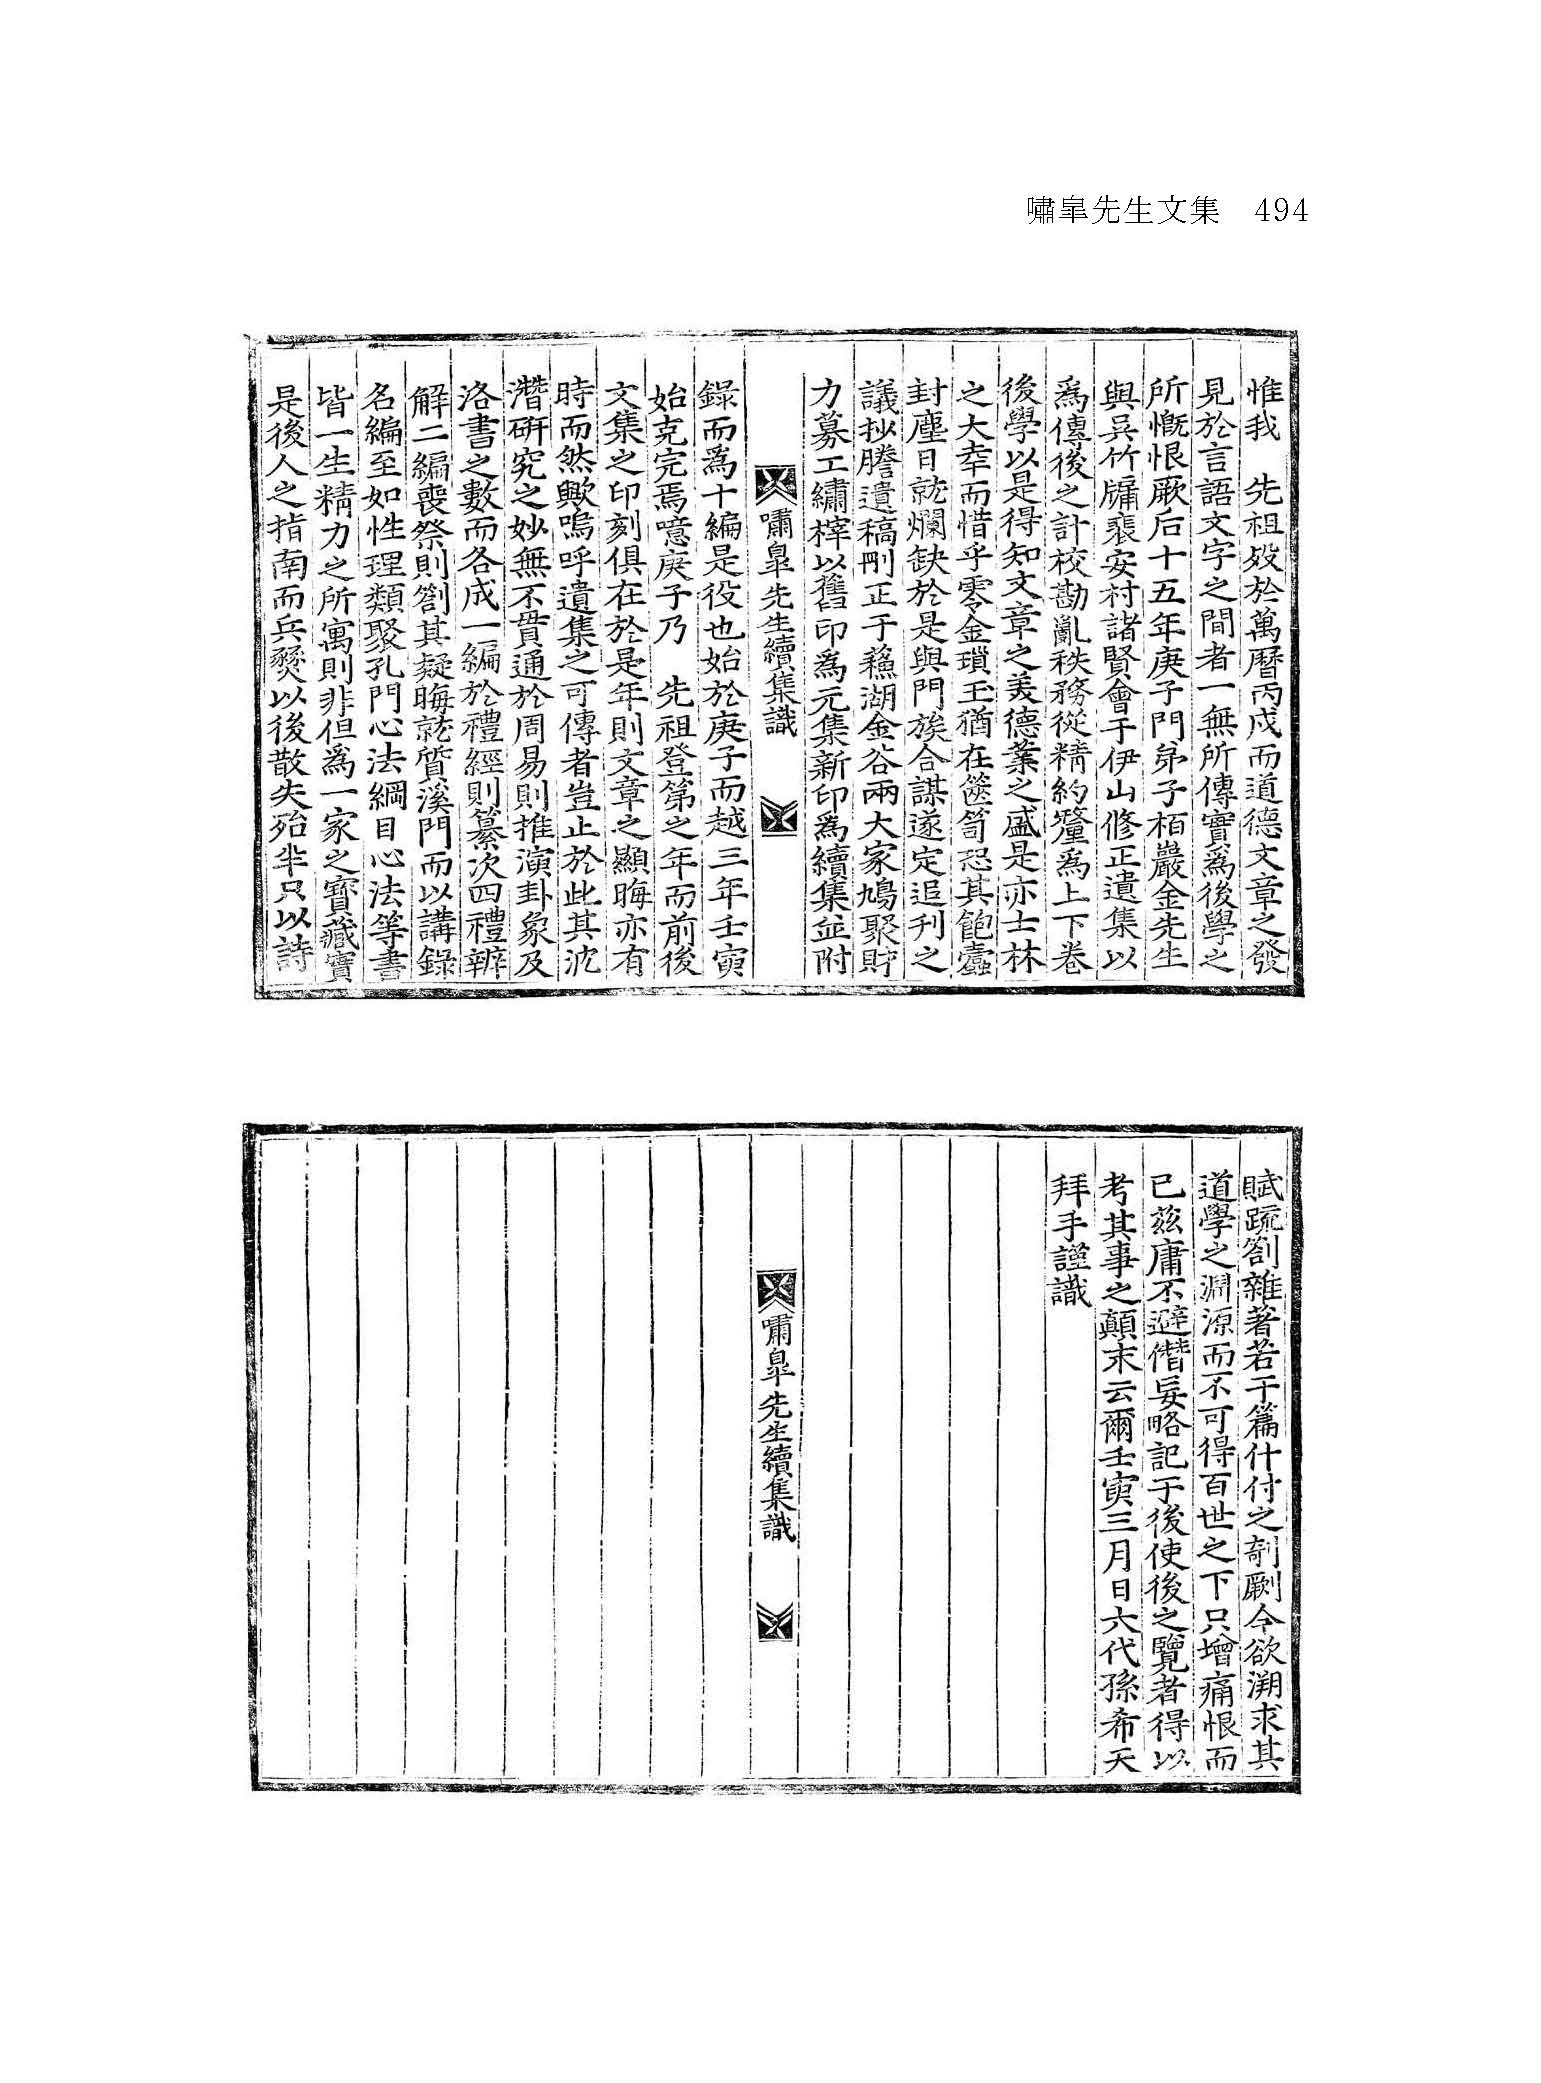 嘯皐先生文集 494
惟我 先祖歿於萬曆丙戌而道德文章之發
見於言語文字之間者一無所傳實爲後學之
所慨恨厥后十五年庚子門弟子栢巖金先生
與吳竹牗裵安村諸賢會于伊山修正遺集以
爲傳後之計校勘亂秩務從精約釐爲上下卷
後學以是得知文章之美德業之盛是亦士林
之大幸而惜乎零金瑣玉猶在篋笥恐其飽蠹
封塵日就爛缺於是與門族合謀遂定追刋之
議抄謄遺稿刪正于蘓湖金谷兩大家鳩聚財
力募工繡榟以舊印爲元集新印爲續集並附
嘯皐先生續集識
錄而爲十編是役也始於庚子而越三年壬寅
始克完焉噫庚子乃 先祖登第之年而前後
文集之印刻俱在於是年則文章之顯晦亦有
時而然歟嗚呼遺集之可傳者豈止於此其沈
濳硏究之妙無不貫通於周易則推演卦象及
洛書之數而各成一編於禮經則纂次四禮辨
解二編喪祭則劄其疑晦就質溪門而以講錄
名編至如性理類聚孔門心法綱目心法等書
皆一生精力之所寓則非但爲一家之寶藏實
是後人之指南而兵燹以後散失殆半只以詩
賦疏劄雜著若干篇什付之剞劂今欲溯求其
道學之淵源而不可得百世之下只增痛恨而
已茲庸不避僭妄略記于後使後之覽者得以
考其事之顚末云爾壬寅三月日六代孫希天
拜手謹識
嘯皐先生續集識